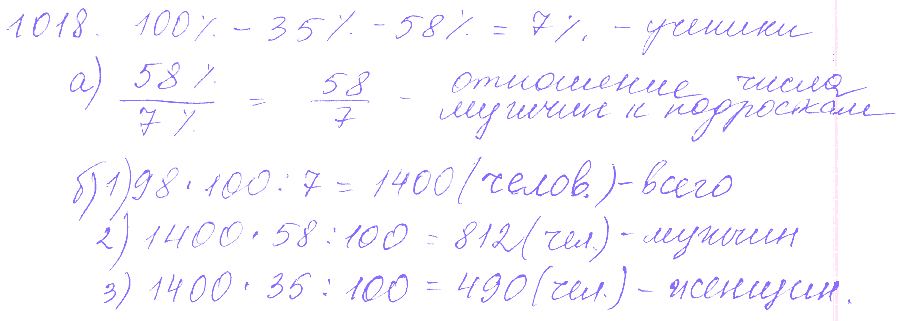 1018. 100% - 35% - 58% = 7%. - ученики
а) 58% / 7% = 58/7 - отношение числа
мужчин к подросткам
б) 1) 98 · 100 : 7 = 1400 (челов.) - всего
2) 1400 · 58 : 100 = 812 (чел.) - мужчин
3) 1400 · 35 : 100 = 490 (чел.) - женщин.